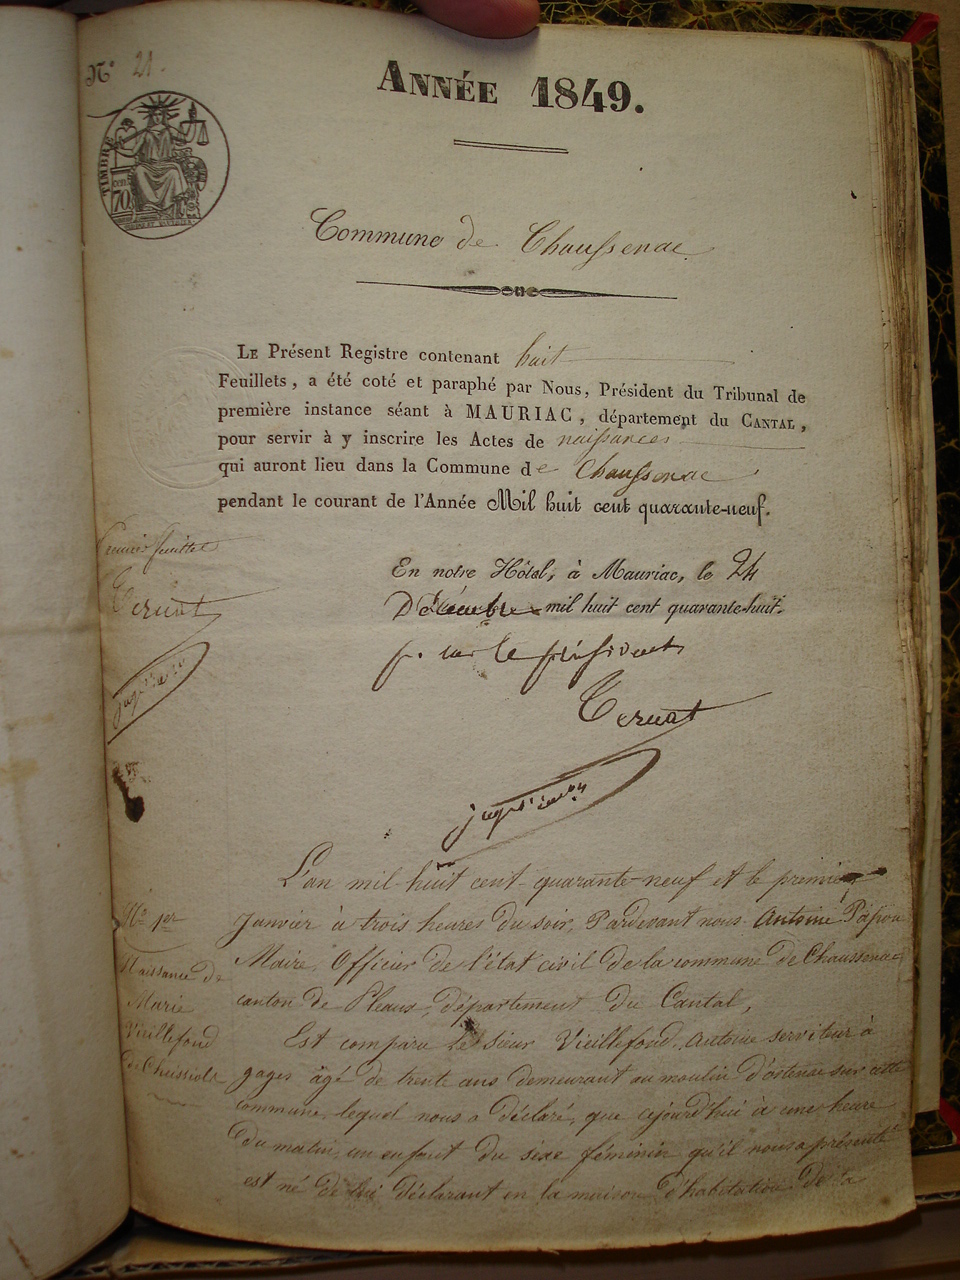 N° 21.
TIMBRE
70
ANNÉE 1849.
Commune de Chaussenac
LE Présent Registre contenant huit
Feuillets, a été coté et paraphé par Nous, Président du Tribunal de
première instance séant à MAURIAC, département du CANTAL,
pour servir à y inscrire les Actes de naissances
qui auront lieu dans la Commune de Chaussenac
pendant le courant de l'Année Mil huit cent quarante-neuf.
premier feuillet
En notre Hôtel, à Mauriac, le 24
Décembre mil huit cent quarante-huit.
p. le président
L'an mil huit cent quarante neuf et le premier
Janvier à trois heures du soir, Pardevant nous Antoine
Maire, Officier de l'état civil de la commune de Chaussenac
canton de Pleaux, département du Cantal,
Est comparu le sieur Vieillefond Antoine serviteur à
gages âgé de trente ans demeurant au moulin d'ostenac sur cette
commune, lequel nous a déclaré, que cejourd'hui à une heure
du matin, un enfant du sexe féminin qu'il nous a présenté
est né de lui déclarant en la maison d'habitation de la
N° 1er
Naissance de
Marie
Vieillefond